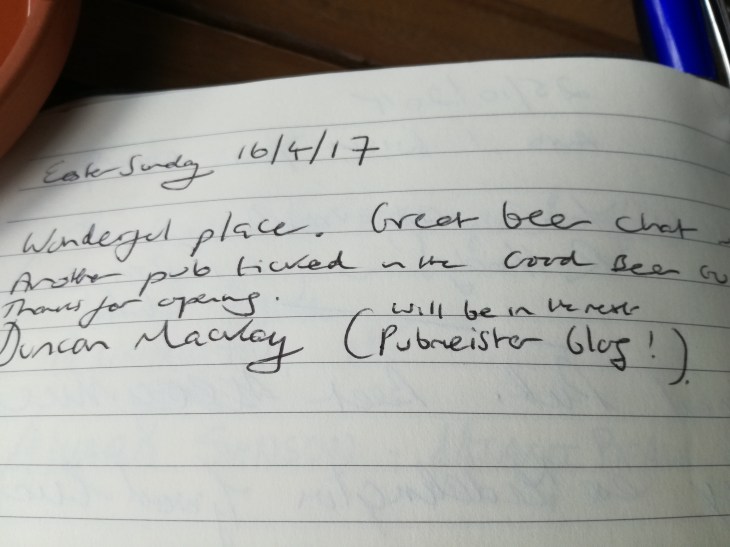 Easter Sunday 16/4/17
Wonderful place. Great beer chat
Another pub ticked in the Good Beer Gu
Thanks for opening.
will be in the next
Duncan Mackay (Pubmeister blog!).